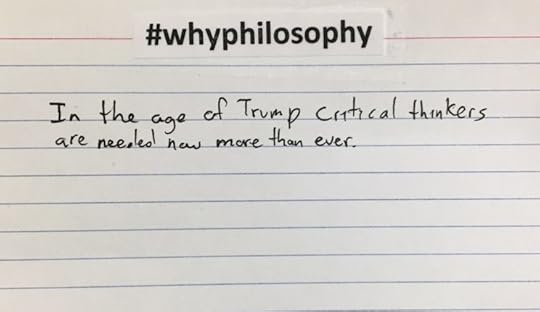 #whyphilosophy
In the age of Trump critical thinkers
are needed now more than ever.